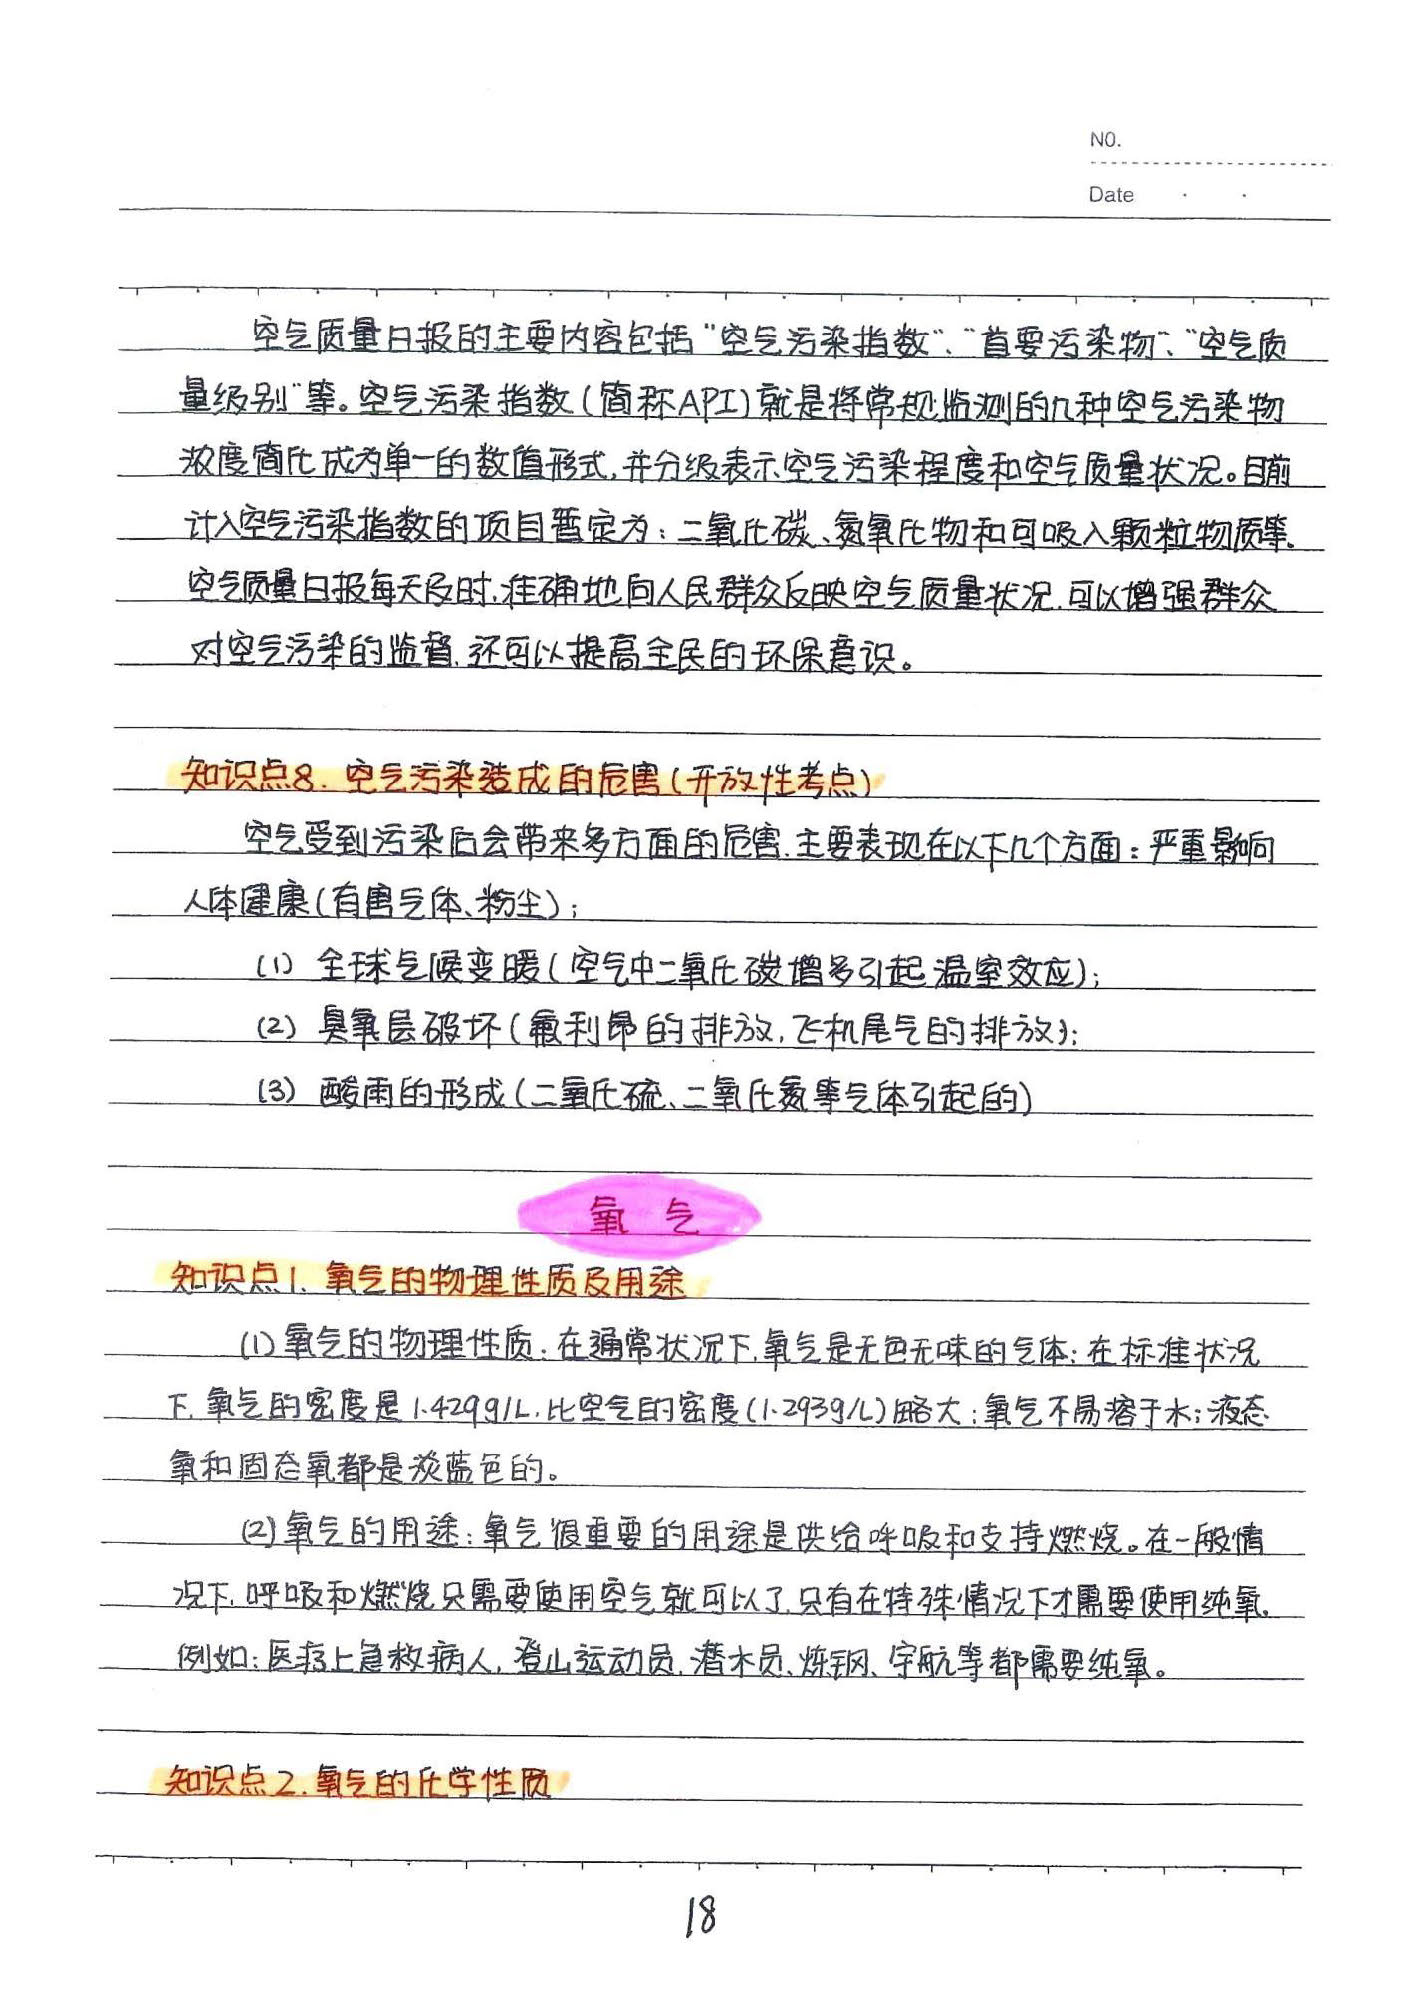 NO.
Date
空气质量日报的主要内容包括“空气污染指数”、“首要污染物”、“空气质
量级别”等。空气污染指数(简称API)就是将常规监测的几种空气污染物
浓度简化成为单一的数值形式,并分级表示空气污染程度和空气质量状况。目前
计入空气污染指数的项目暂定为:二氧化碳、氮氧化物和可吸入颗粒物质等.
空气质量日报每天及时,准确地向人民群众反映空气质量状况,可以增强群众
对空气污染的监督,还可以提高全民的环保意识。
知识点8. 空气污染造成的危害(开放性考点)
空气受到污染后会带来多方面的危害,主要表现在以下几个方面:严重影响
人体健康(有害气体、粉尘);
(1) 全球气候变暖(空气中二氧化碳增多引起温室效应);
(2) 臭氧层破坏(氟利昂的排放,飞机尾气的排放);
(3) 酸雨的形成(二氧化硫、二氧化氮等气体引起的)
氧 气
知识点1. 氧气的物理性质及用途
(1)氧气的物理性质:在通常状况下,氧气是无色无味的气体;在标准状况
下,氧气的密度是1.429g/L,比空气的密度(1.293g/L)略大;氧气不易溶于水;液态
氧和固态氧都是淡蓝色的。
(2)氧气的用途:氧气很重要的用途是供给呼吸和支持燃烧。在一般情
况下,呼吸和燃烧只需要使用空气就可以了,只有在特殊情况下才需要使用纯氧.
例如:医疗上急救病人,登山运动员,潜水员、炼钢、宇航等都需要纯氧。
知识点2.氧气的化学性质
18